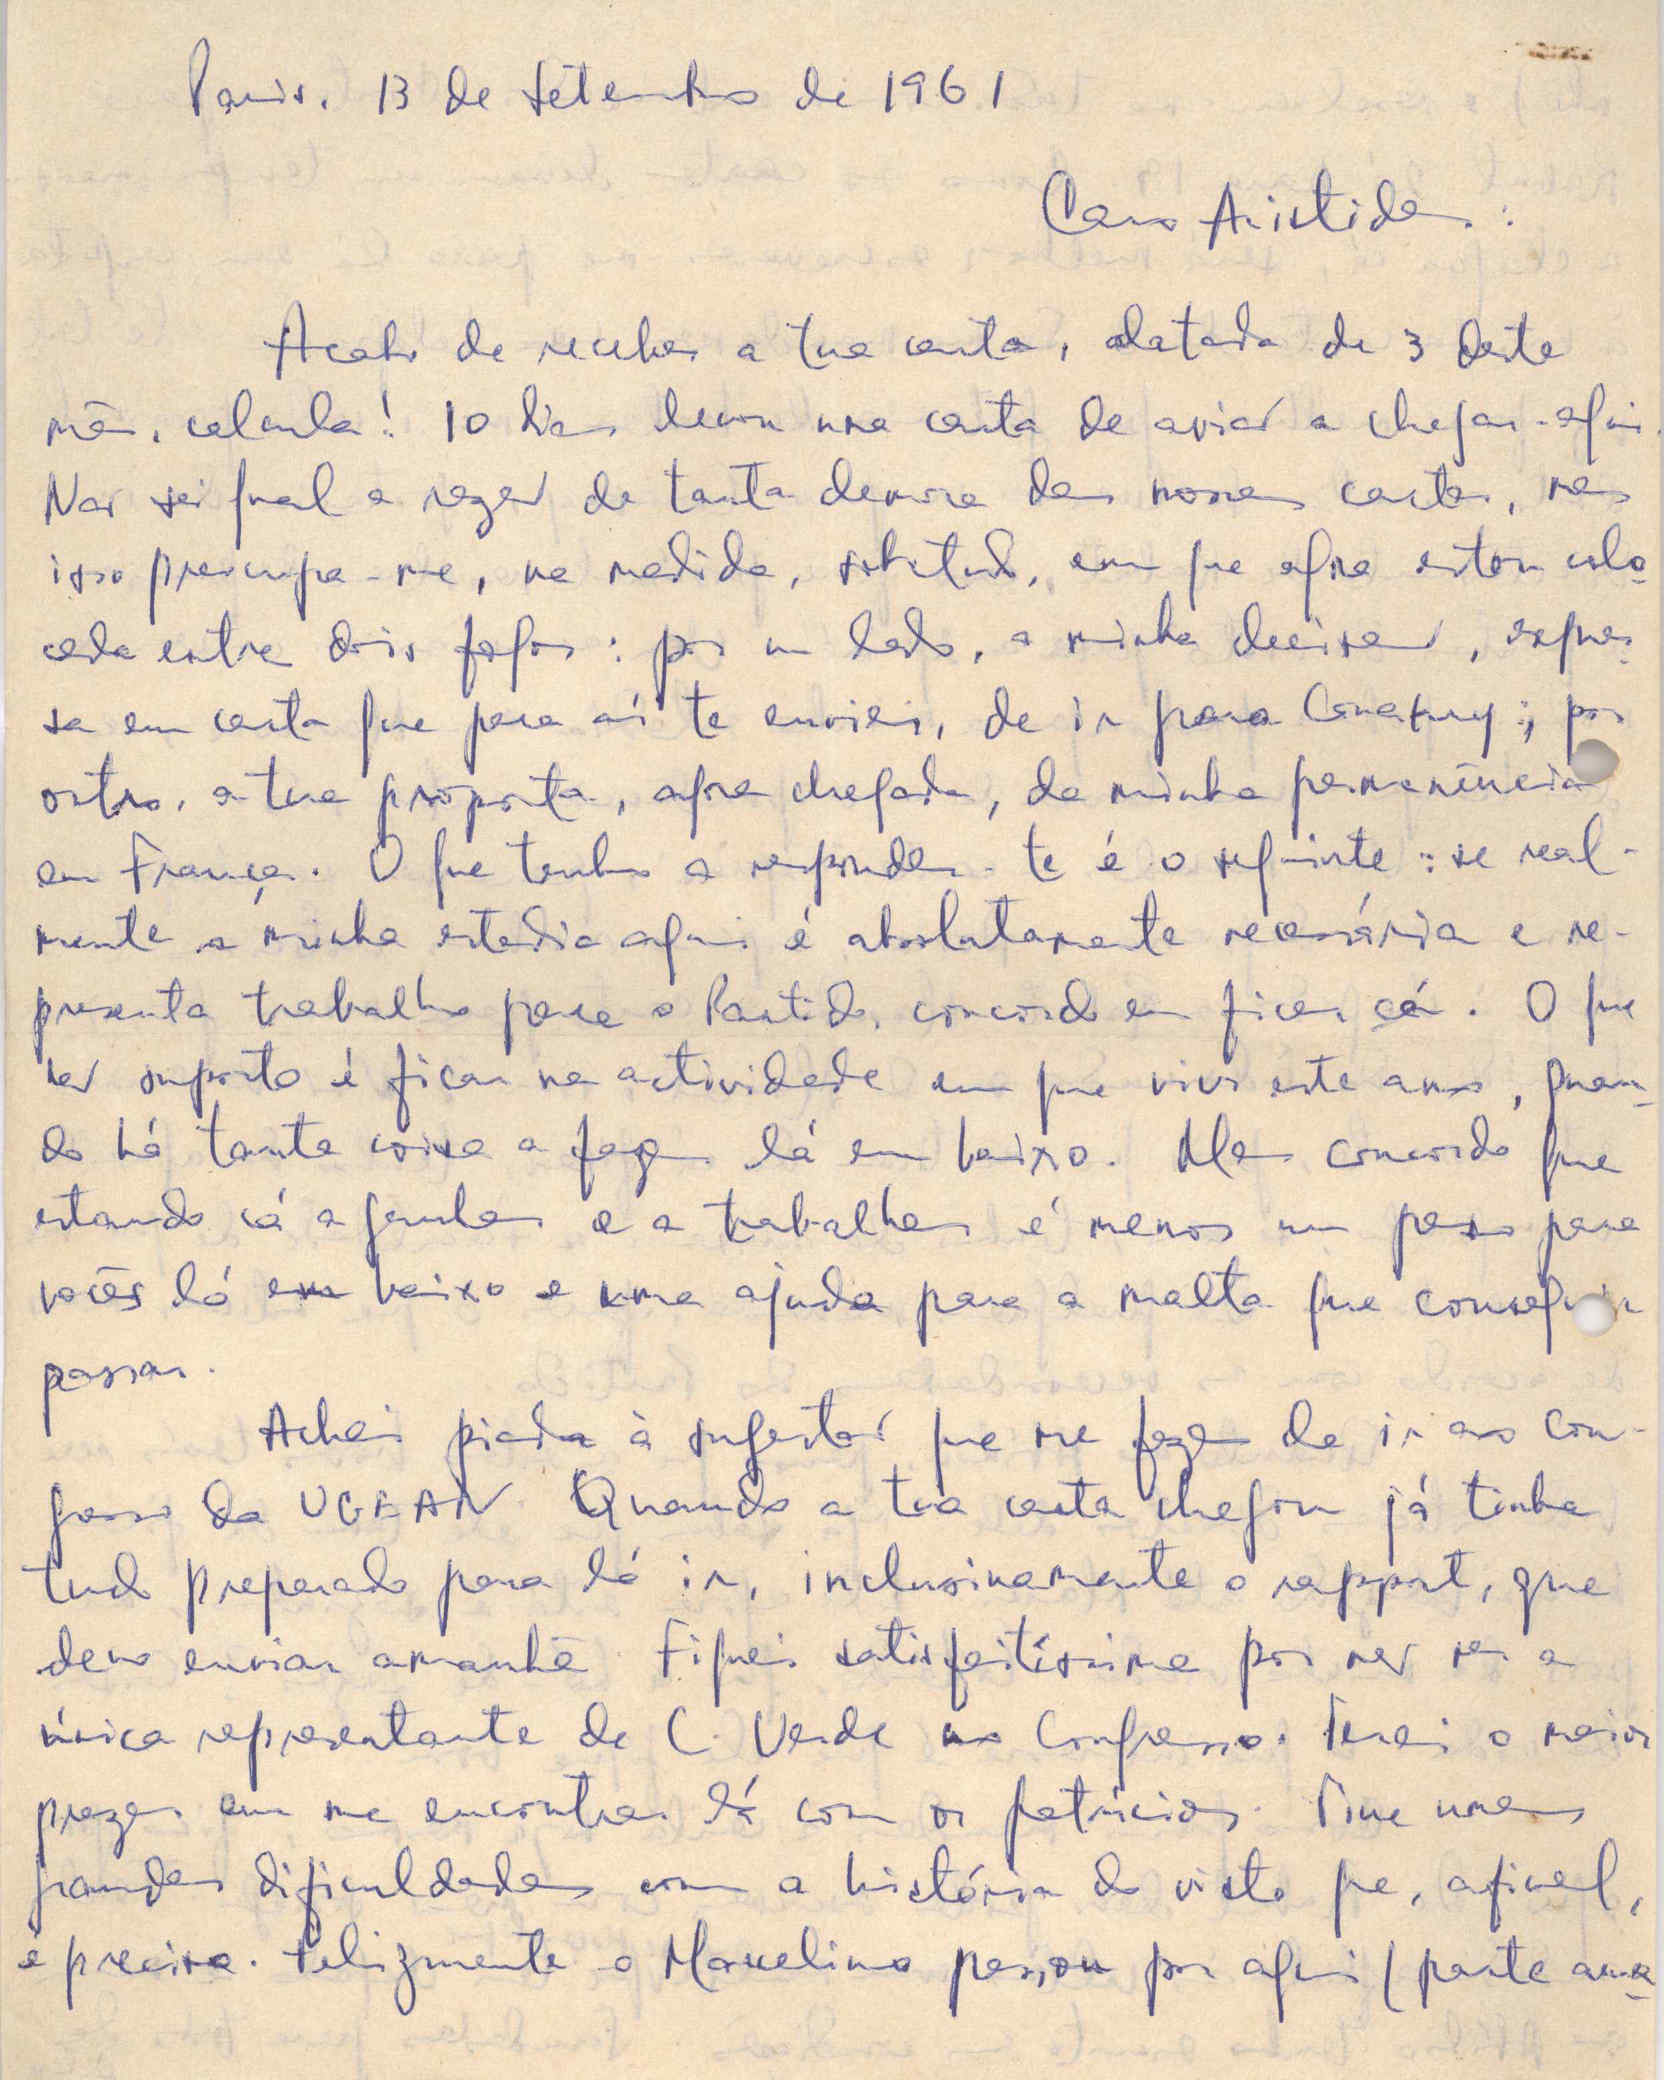 Paris, 13 de Setembro de 1961
Caro Aristides:
Acabo de receber a tua carta, datada de 3 deste
mês, calcula! 10 dias levou uma carta de avião a chegar aqui.
Não sei qual a razão de tanta demora das nossas cartas, mas
isso preocupa-me, na medida, sobretudo, em que agora estou colo-
cada entre dois fogos: por um lado, a minha decisão, expres-
sa em carta que para aí te enviei, de ir para Conakry; por
outro, a tua proposta, agora chegada, da minha permanência
em França. O que tenho a responder-te é o seguinte: se real-
mente a minha estadia aqui é absolutamente necessária e re-
presenta trabalho para o Partido, concordo em ficar cá. O que
não suporto é ficar na actividade em que vivi este ano, quan-
do há tanta coisa a fazer lá em baixo. Mas concordo que
estando cá a ganhar e a trabalhar é menos um peso para
vocês lá em baixo e uma ajuda para a malta que conseguir
passar.
Achei piada à sugestão que me fazes de ir ao Con-
gresso da UGEAN. Quando a tua carta chegou já tinha
tudo preparado para lá ir, inclusivamente o rapport, que
devo enviar amanhã. Fiquei satisfeitíssima por não ser a
única representante de C. Verde no Congresso. Terei o maior
prazer em me encontrar lá com os patrícios. Tive umas
grandes dificuldades com a história do visto que, afinal,
é preciso. Felizmente o Marcelino passou por aqui (parte ama-